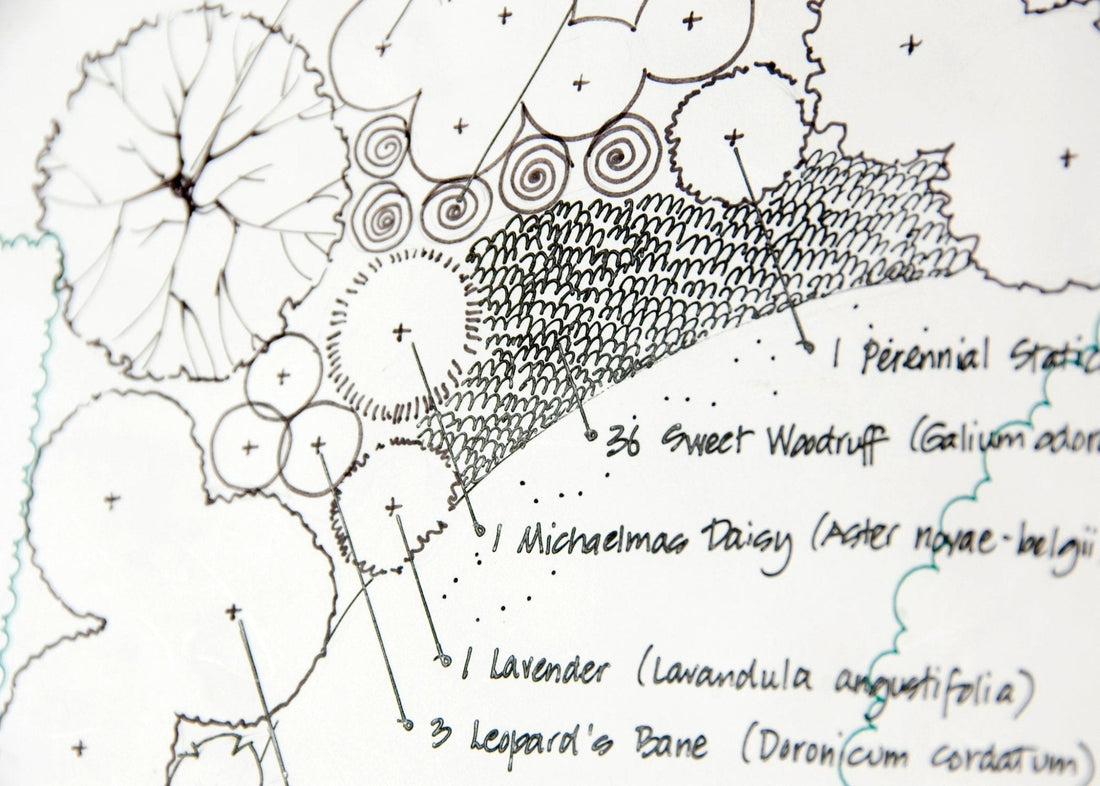 1 Perennial Static
36 Sweet Woodruff (Galium odora
1 Michaelmas Daisy (Aster novae-belgii
1 Lavender (Lavandula angustifolia)
3 Leopard's Bane (Doronicum cordatum)